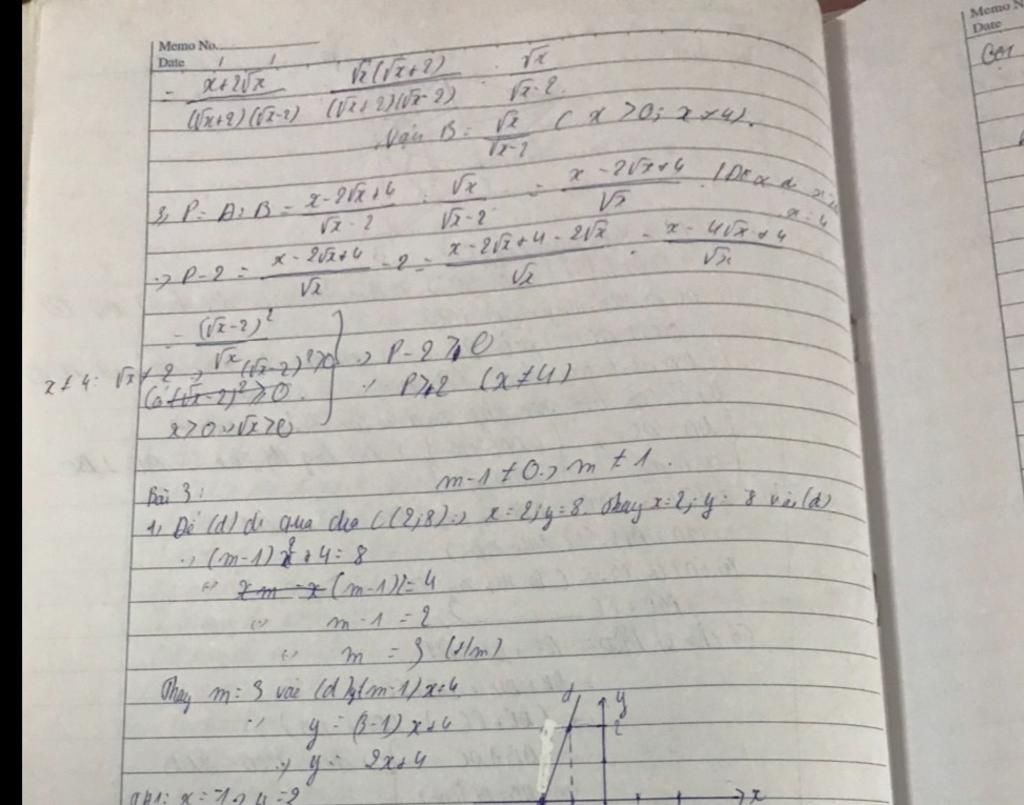 Memo No.
Date / /
= \frac{x+2\sqrt{x}}{(\sqrt{x}+2)(\sqrt{x}-2)} = \frac{\sqrt{x}(\sqrt{x}+2)}{(\sqrt{x}+2)(\sqrt{x}-2)} = \frac{\sqrt{x}}{\sqrt{x}-2}.
Vậy B = \frac{\sqrt{x}}{\sqrt{x}-2} (x > 0; x ≠ 4).
3, P = A : B = \frac{x-2\sqrt{x}+4}{\sqrt{x}-2} : \frac{\sqrt{x}}{\sqrt{x}-2} = \frac{x-2\sqrt{x}+4}{\sqrt{x}}.
=> P - 2 = \frac{x-2\sqrt{x}+4}{\sqrt{x}} - 2 = \frac{x-2\sqrt{x}+4-2\sqrt{x}}{\sqrt{x}} = \frac{x-4\sqrt{x}+4}{\sqrt{x}}
= \frac{(\sqrt{x}-2)^2}{\sqrt{x}}
x ≠ 4: \sqrt{x} ≠ 2 => (\sqrt{x}-2)^2 > 0 => P - 2 > 0
(\sqrt{x}-2)^2 ≥ 0 => P > 2 (x ≠ 4)
x > 0 => \sqrt{x} > 0
m-1 ≠ 0 => m ≠ 1.
Bài 3:
1, Để (d) đi qua C(2;8) => x = 2; y = 8 Thay x = 2; y = 8 vào (d)
=> (m-1)2 + 4 = 8
<=> (m-1)2 = 4
<=> m - 1 = 2
<=> m = 3 (t/m)
Thay m = 3 vào (d) y = (m-1)x+4
=> y = (3-1)x+4
=> y = 2x+4
d y
2
x
x = -1 => y = 2